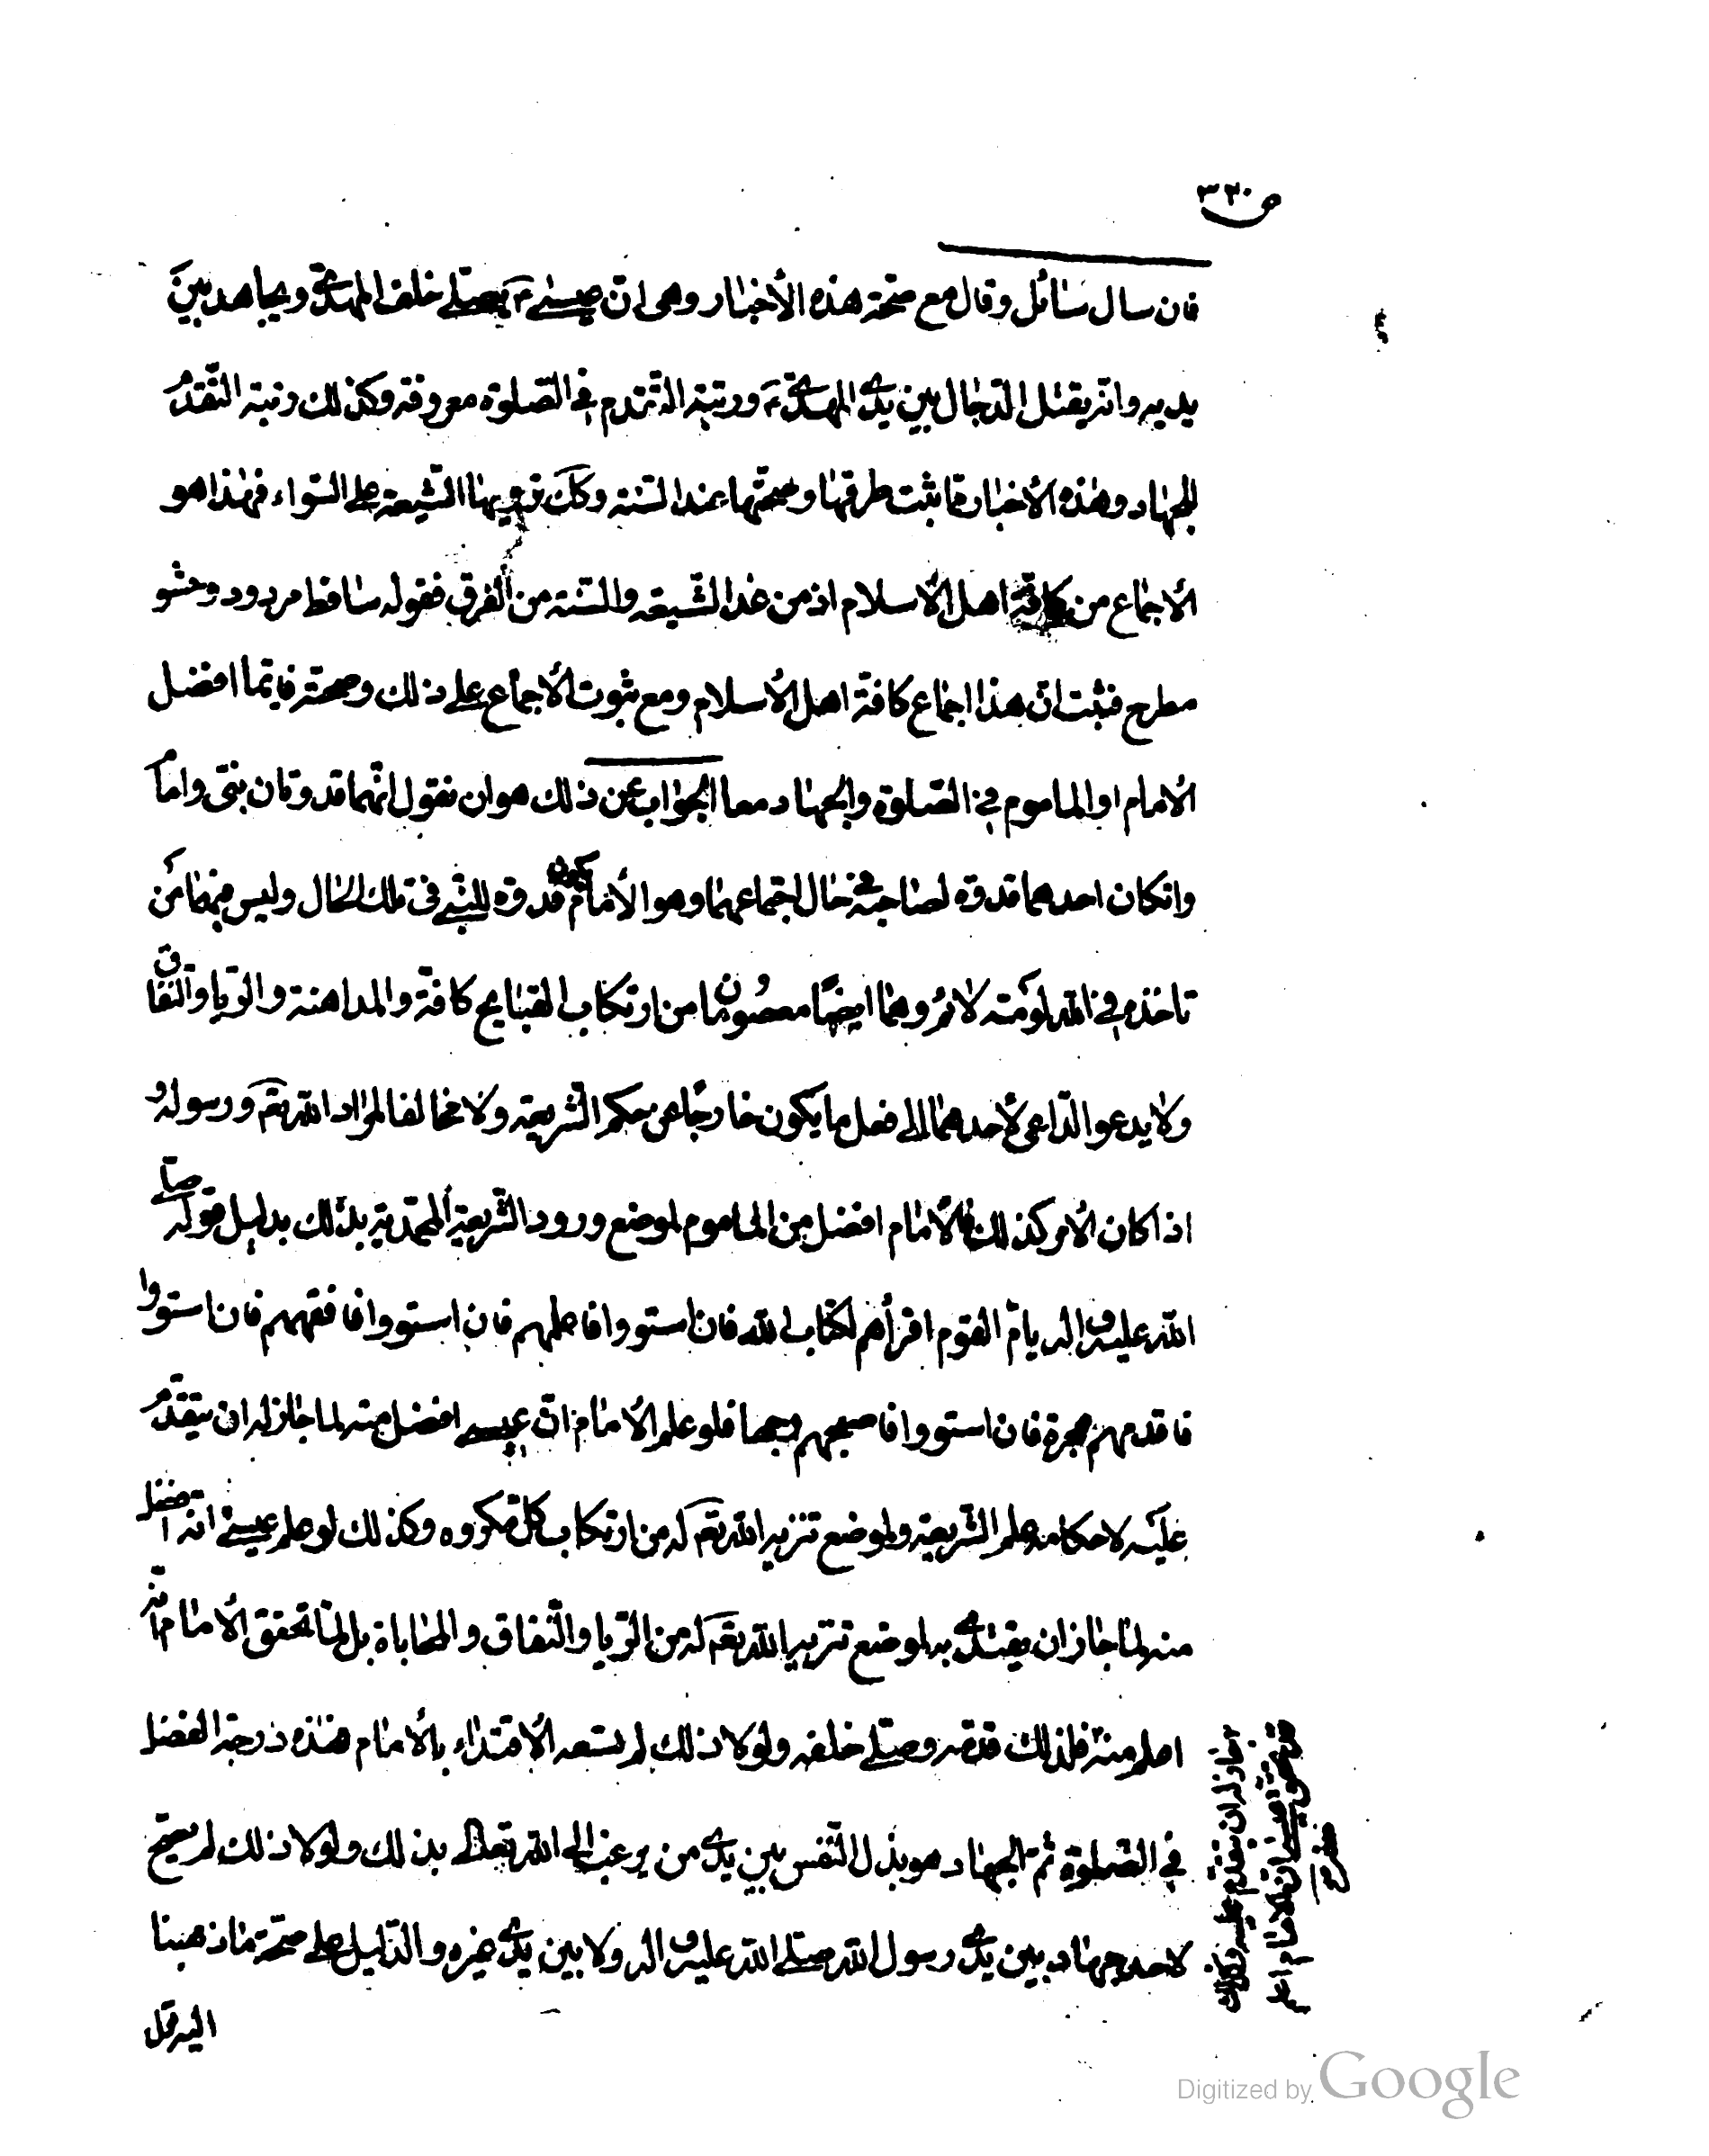 ص ٣٣٠
فان سال سائل وقال مع صحة هذه الأخبار وهى ان عيسى ع يصلى خلف المهدى ويجاهد بين
يديه وانه يقتل الدجال بين يدى المهدى ع ورتبة التقدم فى الصلوة معروفة وكذلك رتبة التقدم
للجهاد وهذه الأخبار مما يثبت طرقها وصحتها عند السنة وكك ترويها الشيعة على السواء فهذا هو
الأجماع من كافة اهل الأسلام اذ من عدا الشيعة والسنة من الفرق فقوله ساقط مردود وحشو
مطرح فثبت ان هذا اجماع كافة اهل الأسلام ومع ثبوت الأجماع على ذلك وصحته فايما افضل
الأمام او الماموم فى الصلوة والجهاد معا الجواب عن ذلك هو ان نقول انهما قدوتان نبى وامام
وانكان احدهما قدوة لصاحبه فى حال اجتماعهما وهو الأمام يكون قدوة للنبى فى تلك الحال وليس فيهما من
تاخذه فى الله لومة لائم وهما ايضا معصومان من ارتكاب القبايح كافة والمداهنة والريا والنفاق
ولا يدعو الداعى لأحدهما الى فعل ما يكون خارجا عن حكم الشريعة ولا مخالفا لمراد الله تعم ورسوله و
اذا كان الأمر كذلك فالأمام افضل من الماموم لموضع ورود الشريعة المحمدية بذلك بدليل قوله صلى
الله عليه واله يام القوم اقرأهم لكتاب الله فان استووا فاعلمهم فان استووا فافقههم فان استووا
فاقدمهم هجرة فان استووا فاصبحهم وجها فلو علم الأمام ان عيسى افضل منه لما جاز له ان يتقدم
عليه لاحكامه علم الشريعة ولموضع تنزيه الله تعم له من ارتكاب كل مكروه وكذلك لو علم عيسى انه افضل
منه لما جاز ان يقتدى به لموضع تنزيه الله تعم له من الريا والنفاق والمحاباة بل لما تحقق الأمام انه
اعلم منه فلذلك قدمه وصلى خلفه ولولا ذلك لم يسعه الأقتداء بالأمام هذه درجة الفضل
فى الصلوة ثم الجهاد هو بذل النفس بين يدى من يرغب الى الله تعالى بذلك ولولا ذلك لم يصح
لاحد جهاد بين يدى رسول الله صلى الله عليه واله ولا بين يدى غيره والدليل على صحة ما ذهبنا
اليه قول
جاز له ان يتقدم عليه وكذلك
الأمام
Digitized by Google